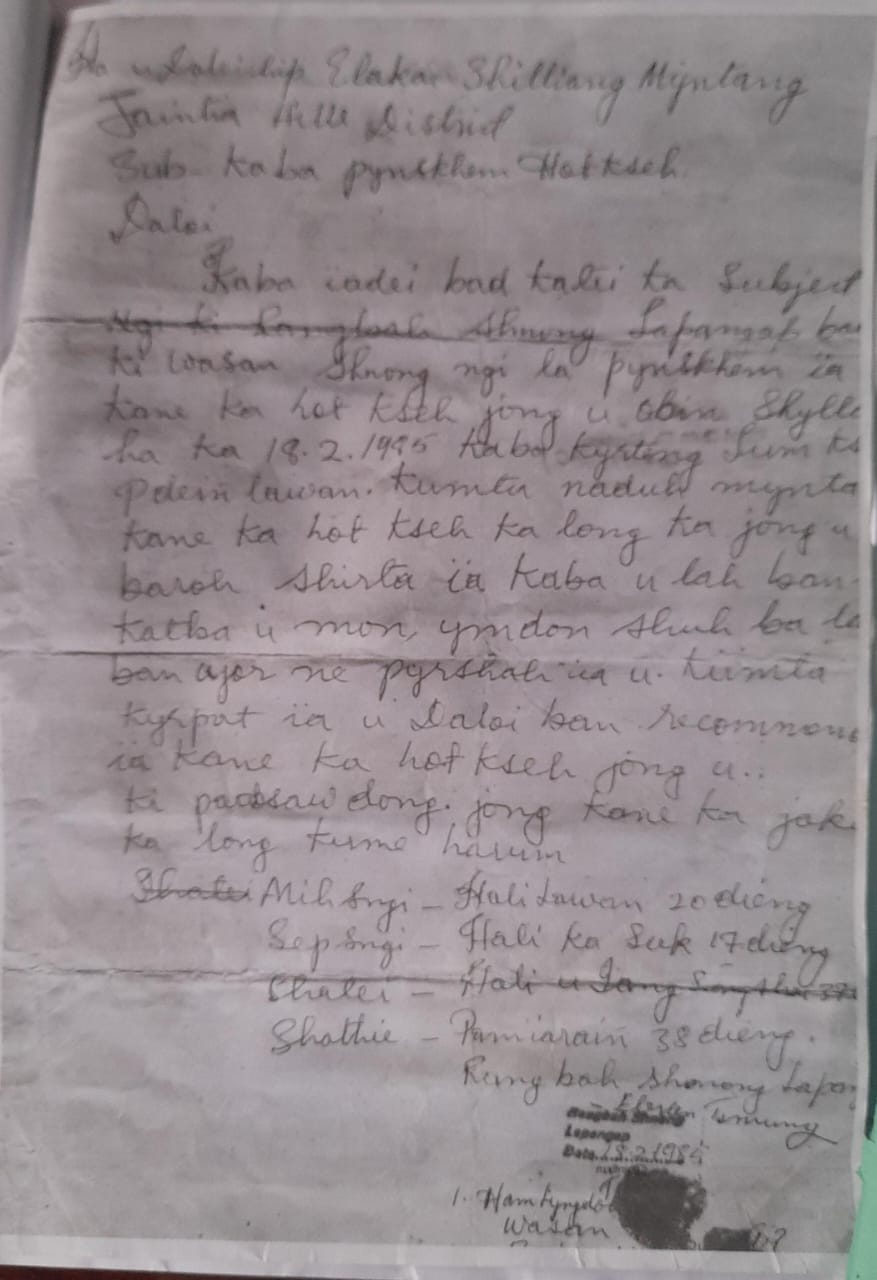 Ha u Daloiship Elaka Shilliang Myntang
Jaintia Hills District
Sub- Kaba pynskhem Hot kseh.
Daloi
Kaba iadei bad katei ka Subject
Ngi ki Rangbah Shnong Lapangap ba
ki wasan Shnong ngi la pynskhem ïa
kane ka hot kseh jong u Obin Shylla
ha ka 18.2.1985 kaba kyrteng Sum
Pdein lawan. Kumta naduh mynta
kane ka hot kseh ka long ka jong u
baroh shirta ïa kaba u lah ban
katba u mon, ymdon shuh ba la
ban ajor ne pyrshah ïa u. Kumta
kyrpat ïa u Daloi ban recommend
ïa kane ka hot kseh jong u..
ki padsaw dong. jong kane ka jak
ka long kume harum
Shatei Mih Sngi - Hali Lawan 20 dieng
Sep Sngi - Hali ka Suk 17 dieng
Shatei - Hali u
Shathie - Pamiarain 38 dieng.
Rung bah Shnong Lapan
Tamung
Rangbah Shnong
Lapangap
Date 18.2.1985
1. Ham Lyngdoh
Wasan